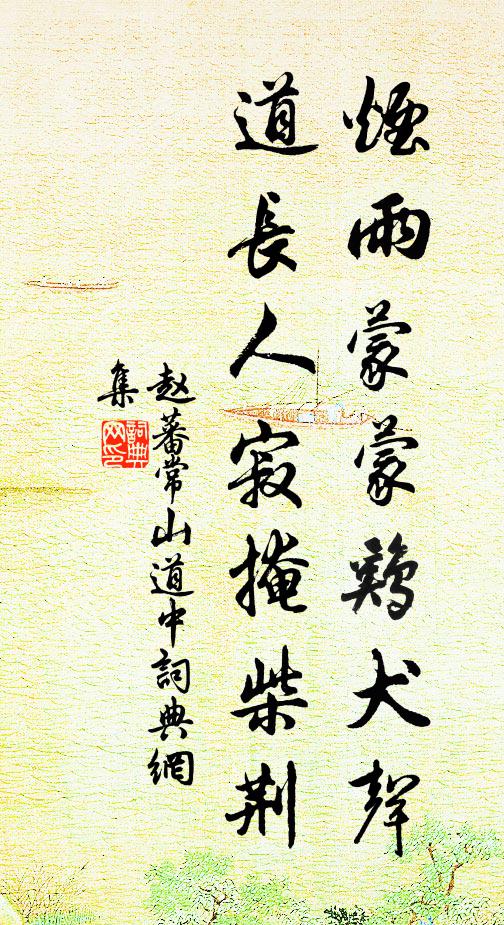 煙雨蒙蒙鷄犬聲
道長人寂掩柴荆
赵蕃常山道中詞典網
集
詞典網印